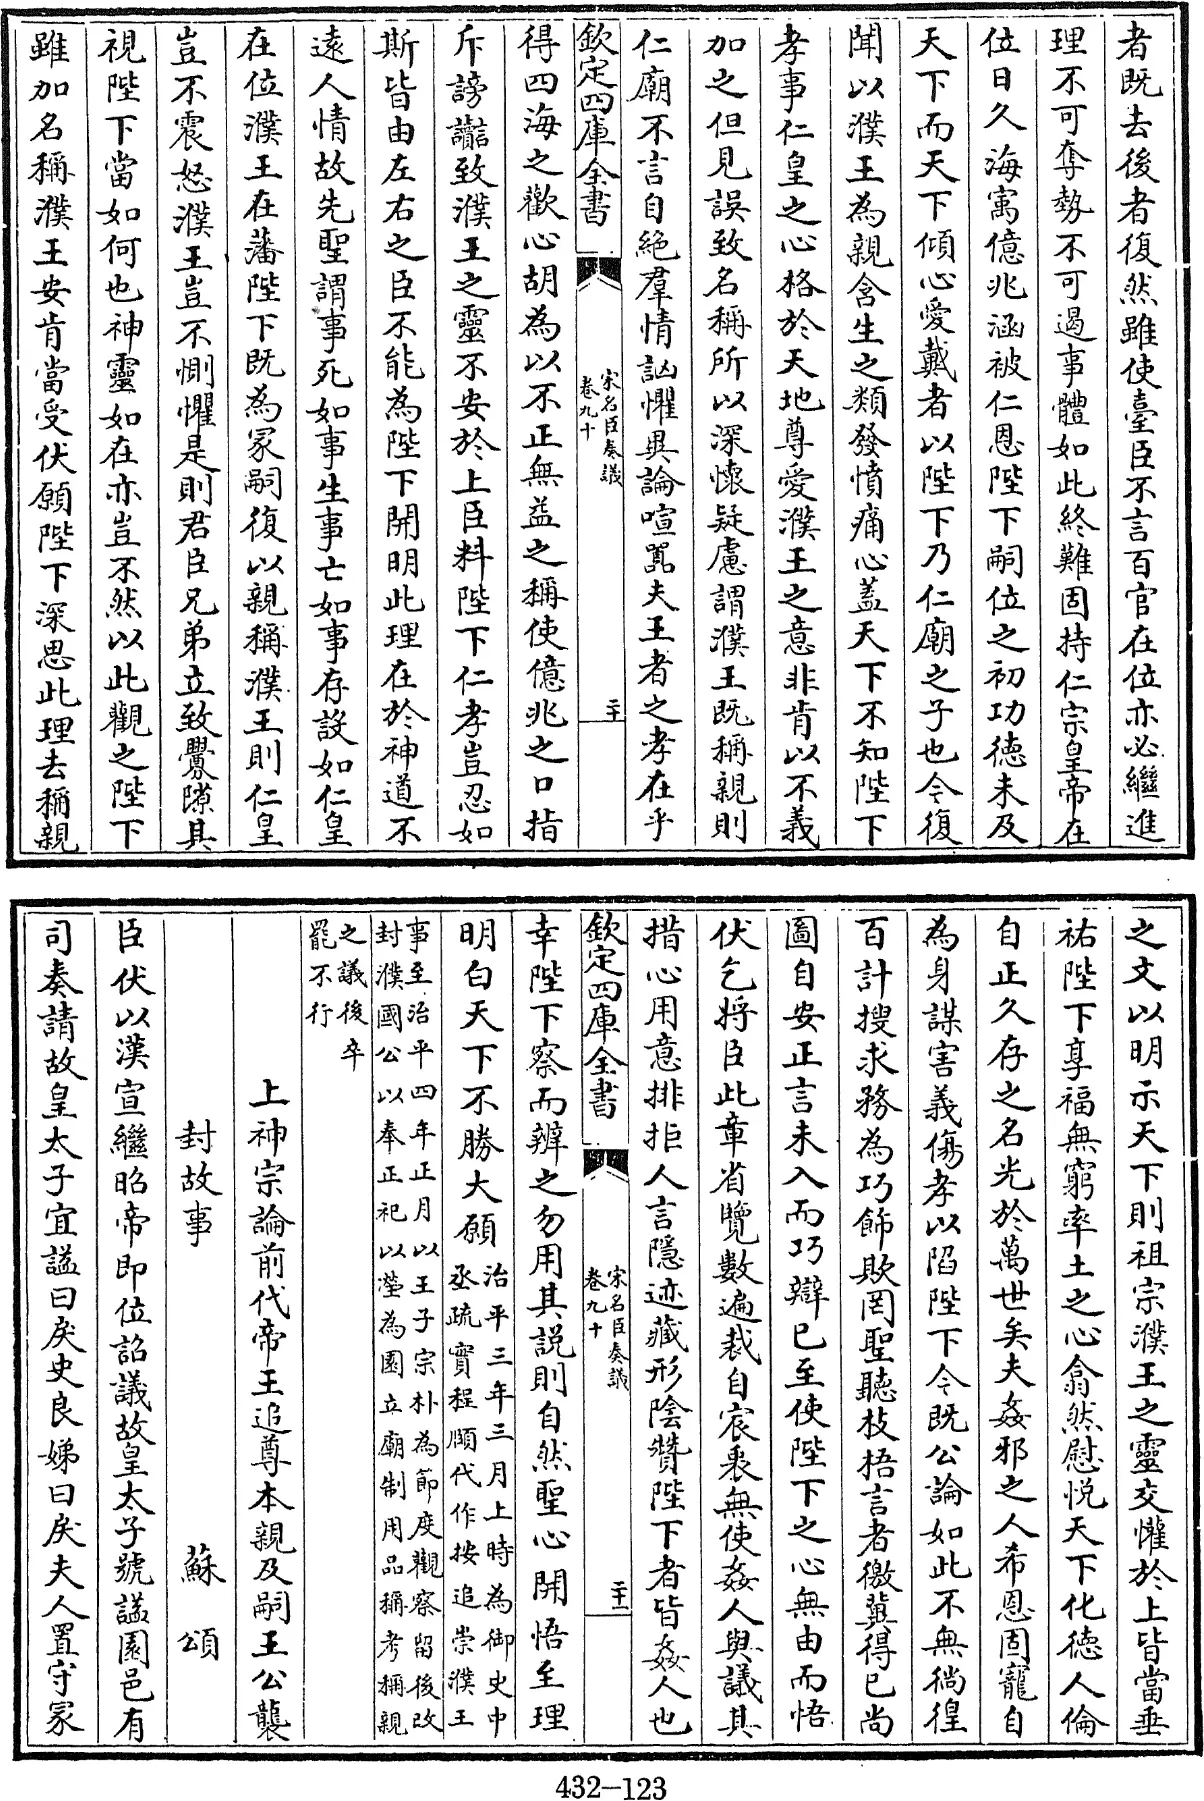 者既去後者復然雖使臺臣不言百官在位亦必繼進
理不可奪勢不可遏事體如此終難固持仁宗皇帝在
位日久海㝢億兆涵被仁恩陛下嗣位之初功德未及
天下而天下傾心愛戴者以陛下乃仁廟之子也今復
聞以濮王為親含生之類發憤痛心蓋天下不知陛下
孝事仁皇之心格於天地尊愛濮王之意非肯以不義
加之但見誤致名稱所以深懷疑慮謂濮王既稱親則
仁廟不言自絶羣情訩懼異論喧嚻夫王者之孝在乎
欽定四庫全書
宋名臣奏議
卷九十
二十
得四海之歡心胡為以不正無益之稱使億兆之口指
斥謗讟致濮王之靈不安於上臣料陛下仁孝豈忍如
斯皆由左右之臣不能為陛下開明此理在於神道不
遠人情故先聖謂事死如事生事亡如事存設如仁皇
在位濮王在藩陛下既為冢嗣復以親稱濮王則仁皇
豈不震怒濮王豈不惻懼是則君臣兄弟立致釁隙其
視陛下當如何也神靈如在亦豈不然以此觀之陛下
雖加名稱濮王安肯當受伏願陛下深思此理去稱親
之文以明示天下則祖宗濮王之靈交懽於上皆當垂
祐陛下享福無窮率土之心翕然慰悦天下化德人倫
自正久存之名光於萬世矣夫姦邪之人希恩固寵自
為身謀害義傷孝以陷陛下今既公論如此不無徜徨
百計搜求務為巧飾欺罔聖聽枝梧言者徼冀得已尚
圖自安正言未入而巧辯已至使陛下之心無由而悟
伏乞將臣此章省覽數遍裁自宸衷無使姦人與議其
措心用意排拒人言隱迹藏形陰贊陛下者皆姦人也
欽定四庫全書
宋名臣奏議
卷九十
二十一
幸陛下察而辨之勿用其説則自然聖心開悟至理
明白天下不勝大願
治平三年三月上時為御史中
丞疏實程頤代作按追崇濮王
事至治平四年正月以王子宗朴為節度觀察留後改
封濮國公以奉正祀以塋為園立廟制用品稱考稱親
之議後卒
罷不行
上神宗論前代帝王追尊本親及嗣王公襲
封故事
蘇頌
臣伏以漢宣繼昭帝即位詔議故皇太子號諡園邑有
司奏請故皇太子宜諡曰戾史良娣曰戾夫人置守冢
432-123